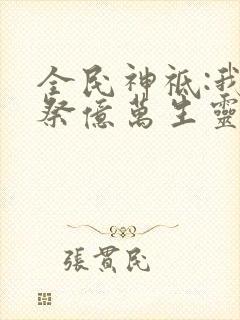 全民神祗:我
祭億萬生靈
張貫民